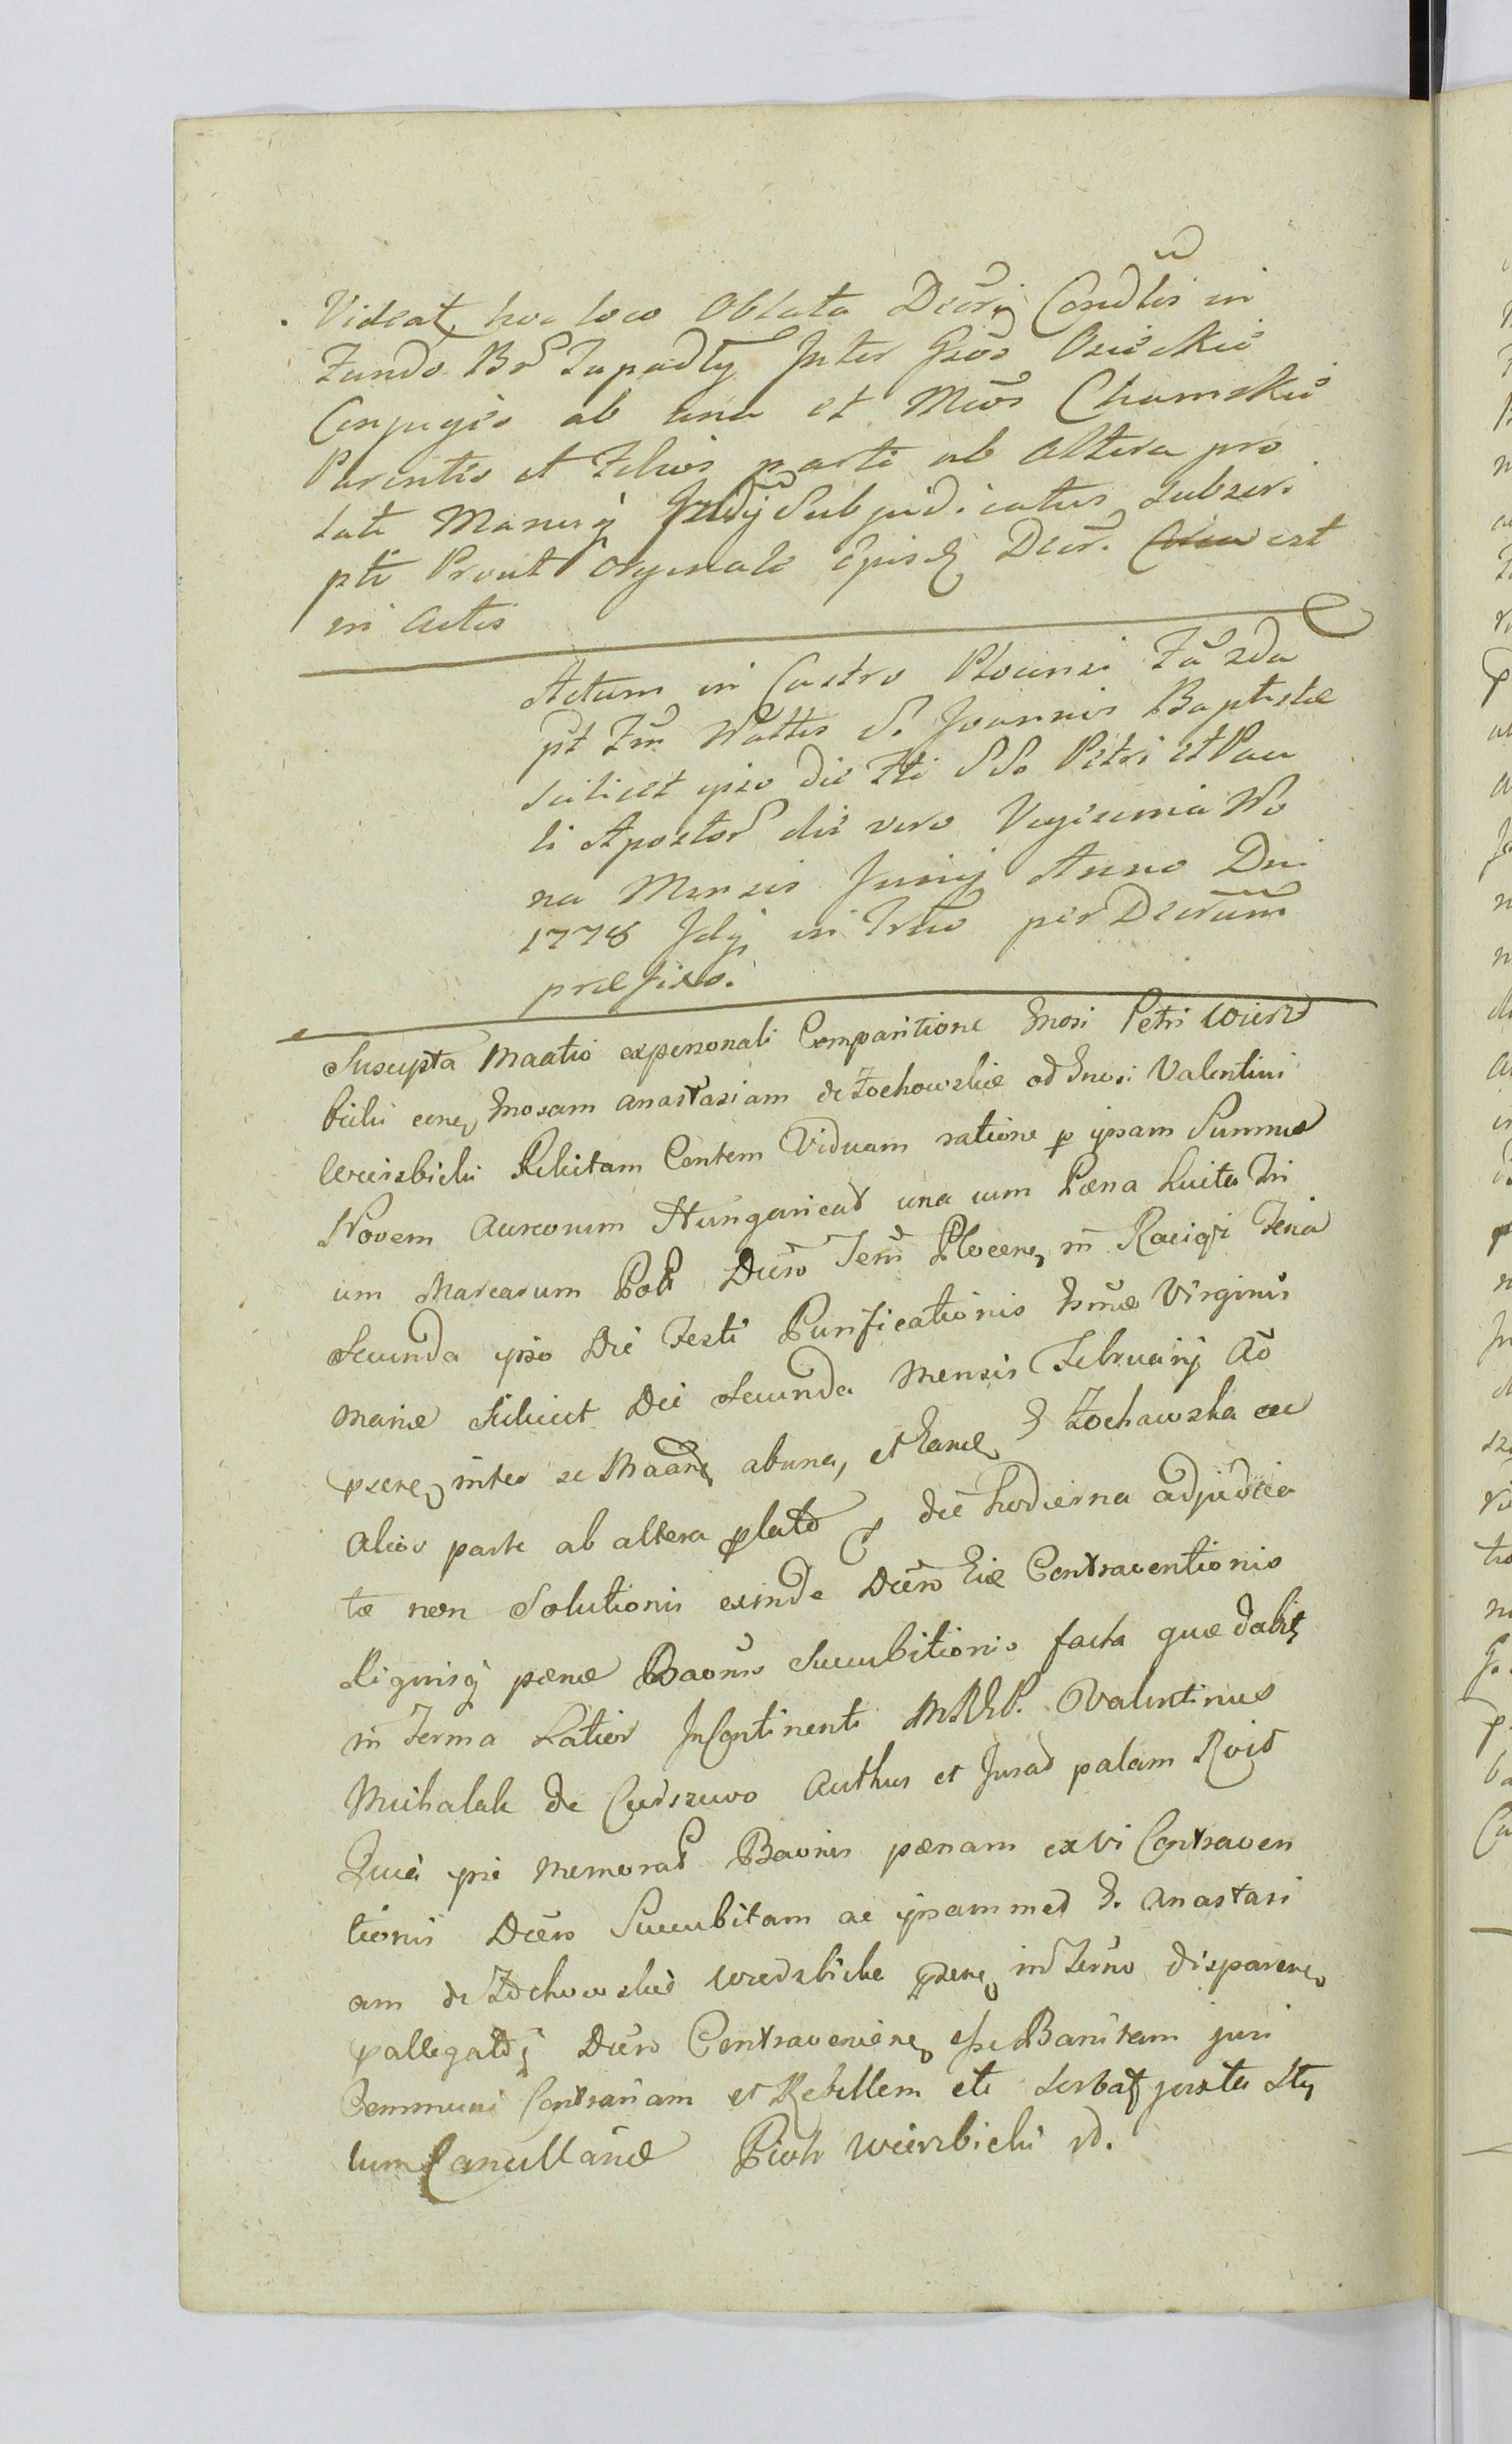 Videat hoc loco Oblata Decri Condlis in
Fundo Br Zupadly Inter Gsos Osieckie
Conjuges ab una et Mcos Chamskie
Parentes et Filios parte ab Altera pro
late Manuq Judij Subjudicatus subscri
pti Prout Orginale Ejusd Decr. est
in Actis
Actum in Castro Plocensi Fa 2da
pt Fm Nattis S. Joannis Baptistæ
scilicet ipso die Fti SS. Petri et Pau
li Apostor die vero Vigesima No
na Mensis Junij Anno Dni
1778 Jdij in Trno per Decrum
præfixo.
Suscepta Maatio expersonali Comparitione Gnosi Petri Wierz
bicki cone Gnosam Anastasiam de Zochowskie od Gnosi Valentini
Wierzbicki Relictam Contem Viduam ratione p ipsam Summæ
Novem Aureorum Hungaricat una cum Pæna Luita Tri
um Marcarum Pol Decro Terri Plocens in Raciąż Feria
Secunda ipso Die Festi Purificationis Bsmæ Virginis
Mariæ Scilicet Die Secunda Mensis Februarij Ao
psene inter se Maane abuna, et Eand G Zochowska ac
Alios parte ab altera plato q die hodierna adjudica
tæ non Solutionis exinde Decro Eiæ Contraventionis
Signisq pænæ Baonis Succubitionis facta quæ dabit
in Forma Latior Incontinenti MRGP. Valentinus
Michalak de Cudszewo Authus et Jurad palam Roid
Quia ipse Memorat Baonis pænam ex vi Contraven
tionis Decro Succubitam ac ipsammet G. Anastasi
am de Zochowskie Wierzbicka psene in Termo disparene
pallegatoq Decro Contraveniene esse Banitam juri
Communi Contrariam et Rebellem etc Servat juxta Sty
lum Cancellariæ Piotr Wierzbicki rd.